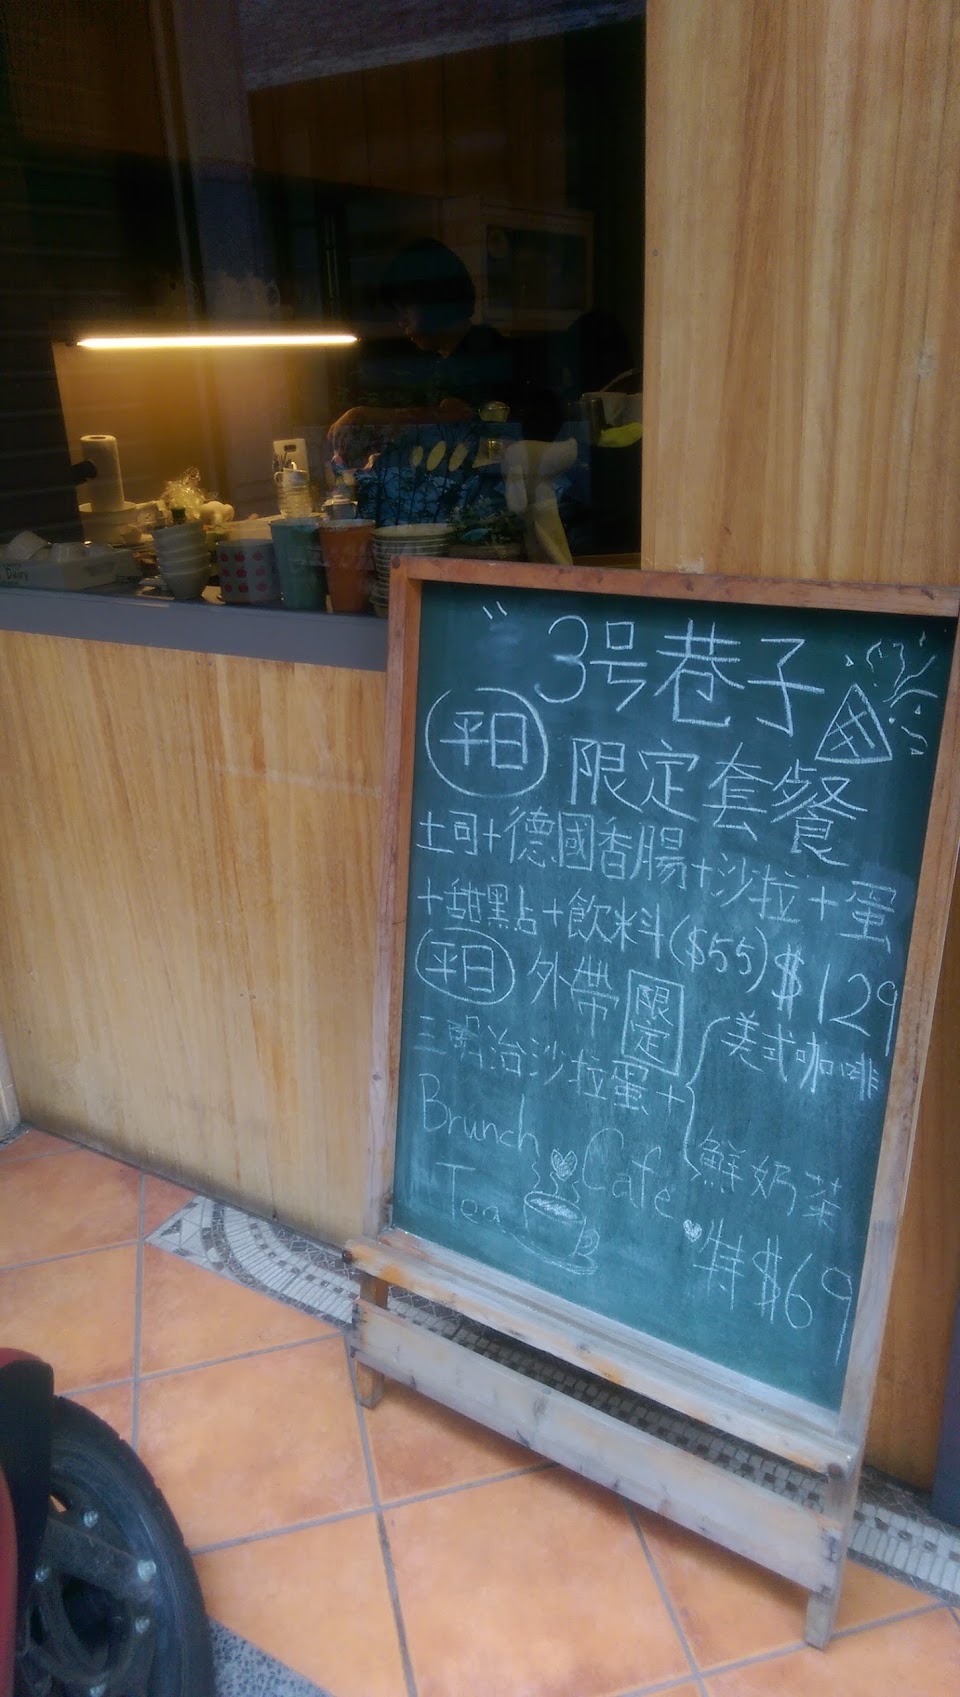 3号巷子
平日 限定套餐
土司+德國香腸+沙拉+蛋
+甜點+飲料($55)$129
平日 外帶 限定
三明治沙拉蛋+
美式咖啡
鮮奶茶
Brunch Cafe
Tea
特$69
Dairy